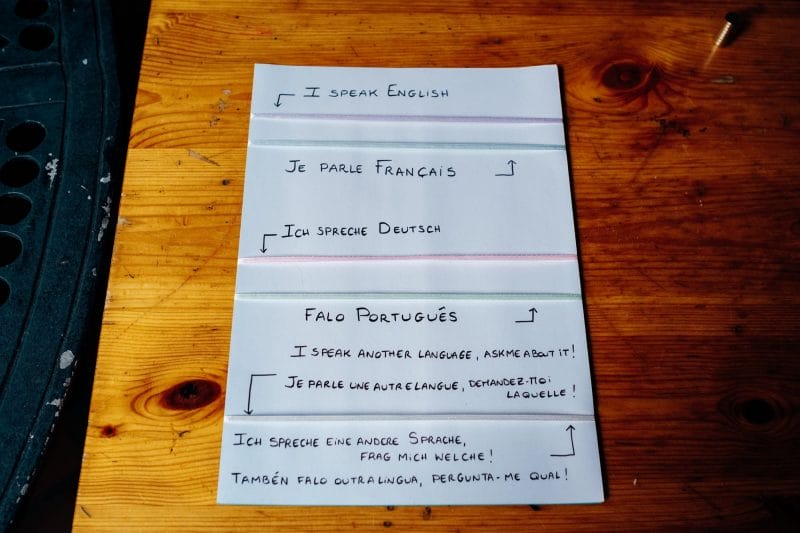 I SPEAK ENGLISH
JE PARLE FRANÇAIS
ICH SPRECHE DEUTSCH
FALO PORTUGUÊS
I SPEAK ANOTHER LANGUAGE, ASK ME ABOUT IT!
JE PARLE UNE AUTRE LANGUE, DEMANDEZ-MOI
LAQUELLE!
ICH SPRECHE EINE ANDERE SPRACHE,
FRAG MICH WELCHE!
TAMBÉN FALO OUTRA LINGUA, PERGUNTA-ME QUAL!